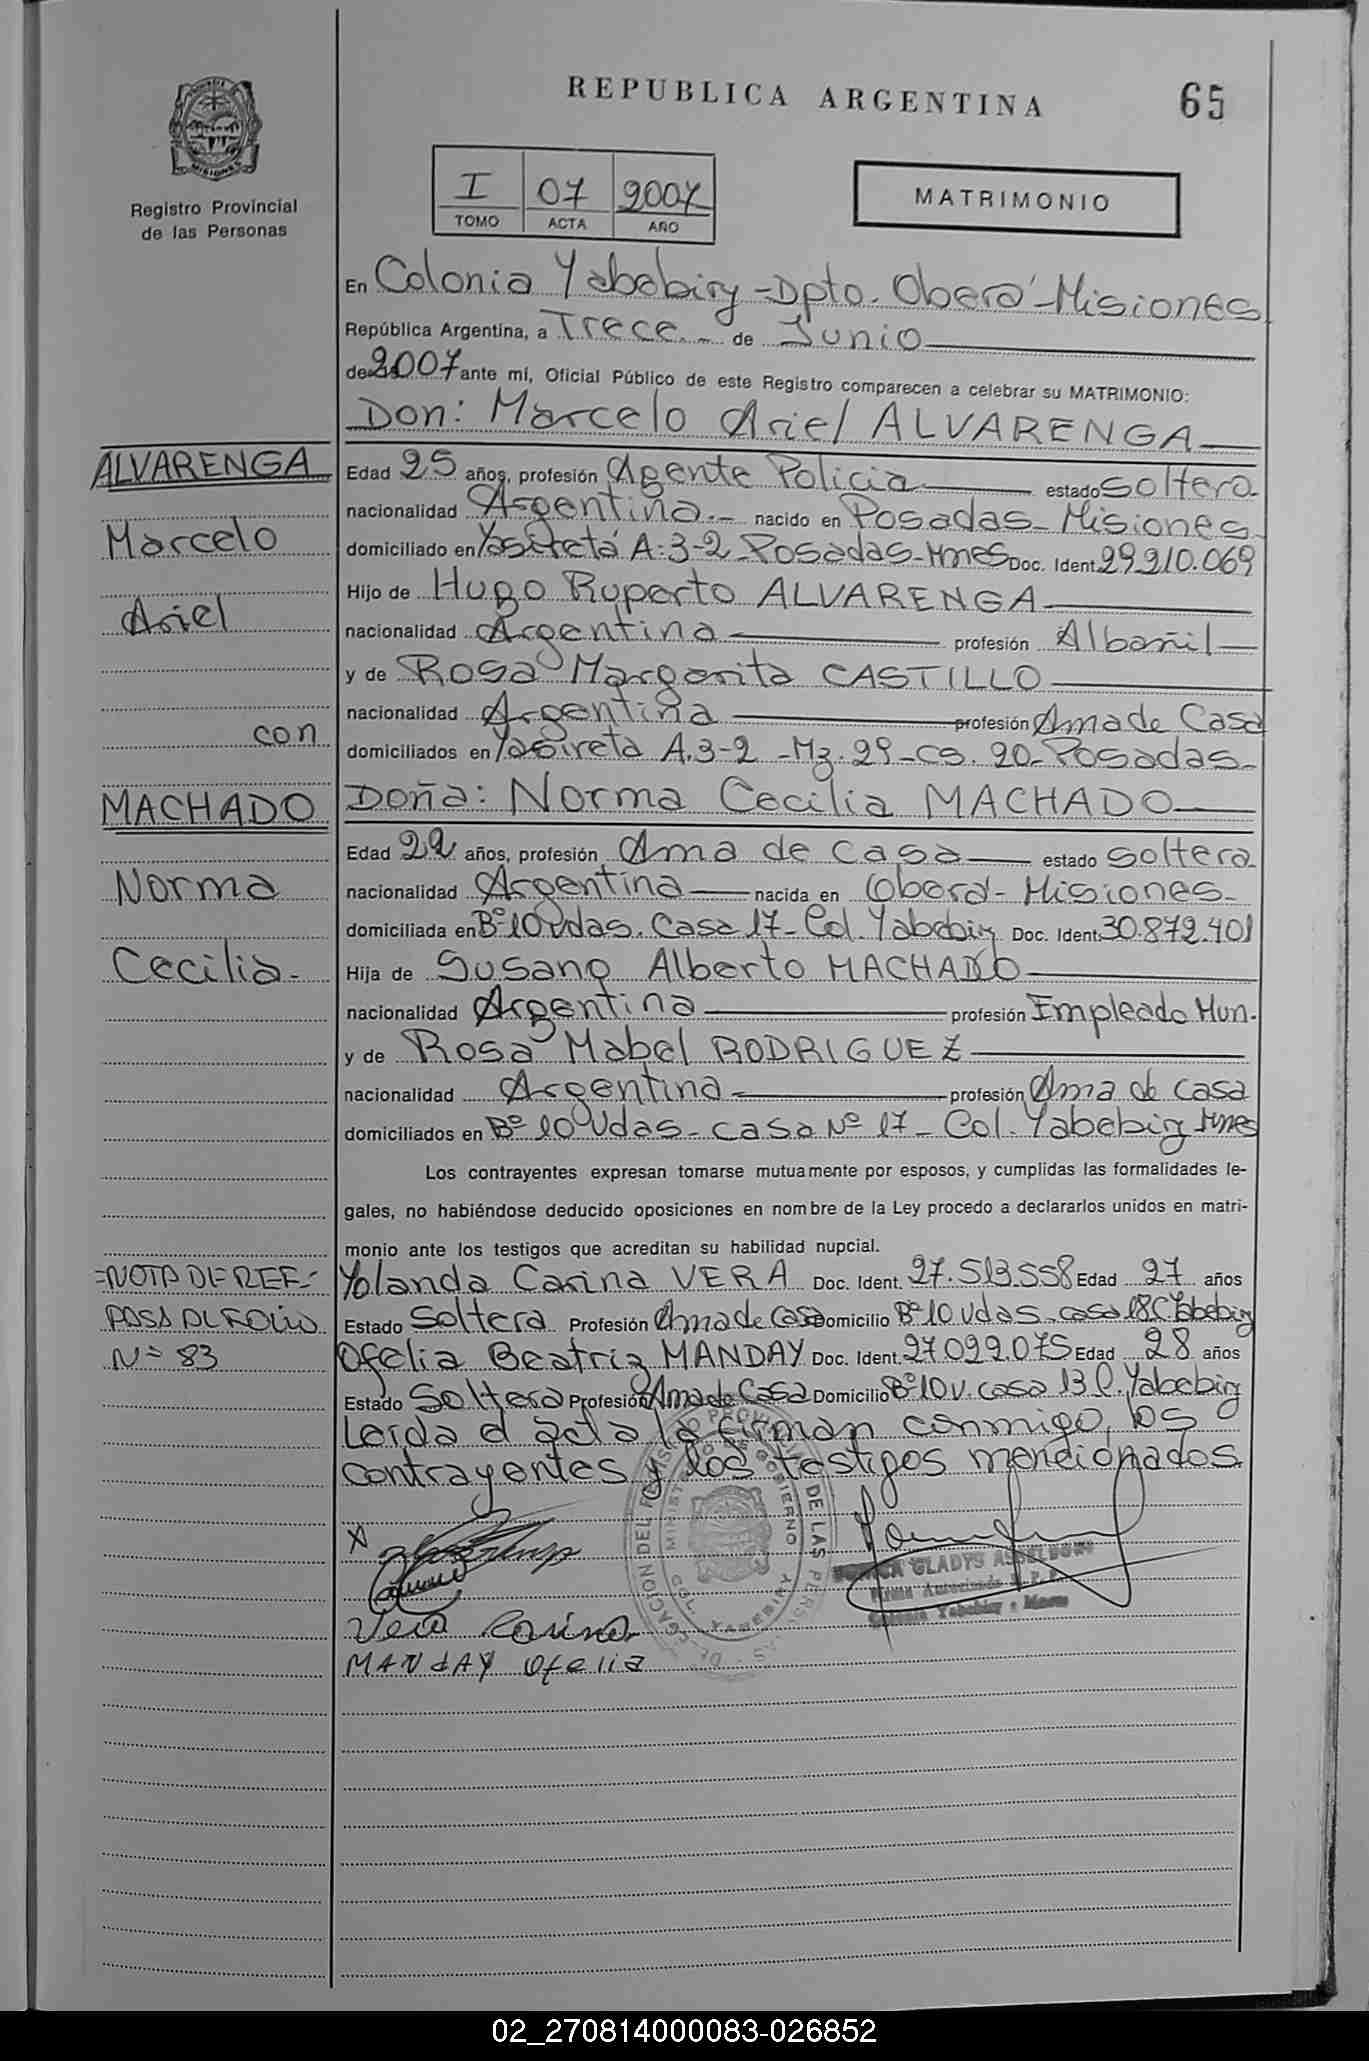 REPUBLICA ARGENTINA
65
MISIONES
Registro Provincial
de las Personas
I 07 2007
TOMO ACTA AÑO
MATRIMONIO
En Colonia Yabebiry - Dpto. Oberá - Misiones
República Argentina, a Trece.- de Junio
de 2007 ante mí, Oficial Público de este Registro comparecen a celebrar su MATRIMONIO:
Don: Marcelo Ariel ALVARENGA
Edad 25 años, profesión Agente Policia estado soltera
nacionalidad Argentina.- nacido en Posadas - Misiones
domiciliado en Yasiretá A:3-2 Posadas - Mnes Doc. Ident. 29.210.069
Hijo de Hugo Ruperto ALVARENGA
nacionalidad Argentina profesión Albañil
y de Rosa Margarita CASTILLO
nacionalidad Argentina profesión Ama de Casa
domiciliados en Yasireta A.3-2 - Mz. 29 - Cs. 20 - Posadas -
Doña: Norma Cecilia MACHADO
Edad 22 años, profesión Ama de casa estado soltera
nacionalidad Argentina nacida en Oberá - Misiones -
domiciliada en Bº 10 Vdas. Casa 17 - Col. Yabebiry Doc. Ident. 30.872.401
Hija de Susano Alberto MACHADO
nacionalidad Argentina profesión Empleado Mun.
y de Rosa Mabel RODRIGUEZ
nacionalidad Argentina profesión Ama de casa
domiciliados en Bº 10 Vdas - casa Nº 17 - Col. Yabebiry Mnes
Los contrayentes expresan tomarse mutuamente por esposos, y cumplidas las formalidades le-
gales, no habiéndose deducido oposiciones en nombre de la Ley procedo a declararlos unidos en matri-
monio ante los testigos que acreditan su habilidad nupcial.
Yolanda Carina VERA Doc. Ident. 27.513.558 Edad 27 años
Estado Soltera Profesión Ama de Casa Domicilio Bº 10 Vdas - casa 18 C Yabebiry
Ofelia Beatriz MANDAY Doc. Ident. 27.092.075 Edad 28 años
Estado Soltera Profesión Ama de Casa Domicilio Bº 10 V. casa 13 C. Yabebiry
Leída el acta la firman conmigo, los
contrayentes y los testigos mencionados.
Vera Carina
MANdAY Ofelia
GLADYS
Firma Autorizada
Colonia Yabebiry - Mnes
MINISTERIO DE GOBIERNO
COL. YABEBIRY
ALVARENGA
Marcelo
Ariel
con
MACHADO
Norma
Cecilia -
=NOTA DE REF=
PASA AL FOLIO
Nº 83
02_270814000083-026852